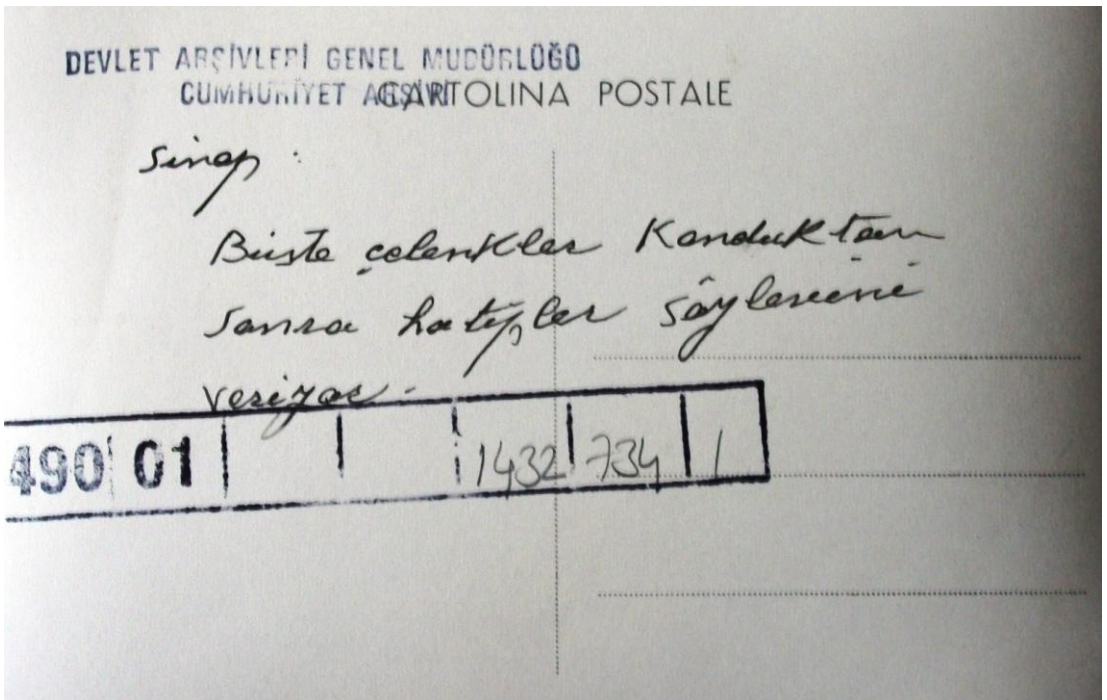 DEVLET ARŞİVLERİ GENEL MÜDÜRLÜĞÜ
CUMHURİYET ARŞİVİ
CARTOLINA POSTALE
Sinop :
Büste çelenkler Konduktan
sonra hatipler söylevini
veriyor -
490 01 1432 734 1